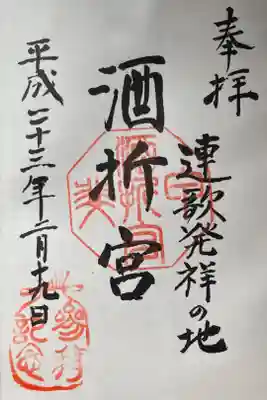 奉拝
連歌発祥の地
酒折宮
平成二十三年二月十九日